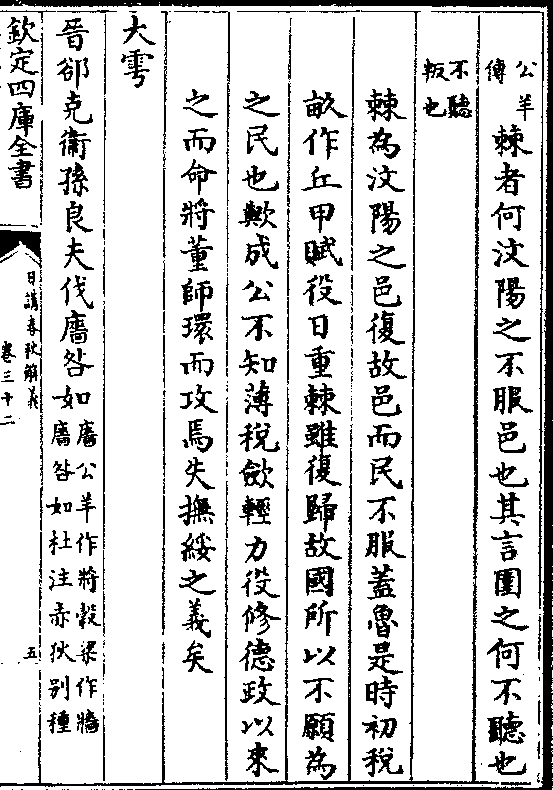 公羊傳
棘者何汶陽之不服邑也其言圍之何不聽也
不聽叛也
棘為汶陽之邑復故邑而民不服蓋魯是時初稅
畝作丘甲賦役日重棘雖復歸故國所以不願為
之民也歟成公不知薄稅斂輕力役修德政以來
之而命將董師環而攻焉失撫綏之義矣
大雩
晉郤克衛孫良夫伐廧咎如
廧公羊作將穀梁作牆
廧咎如杜注赤狄别種
欽定四庫全書
日講春秋解義
卷三十二
五